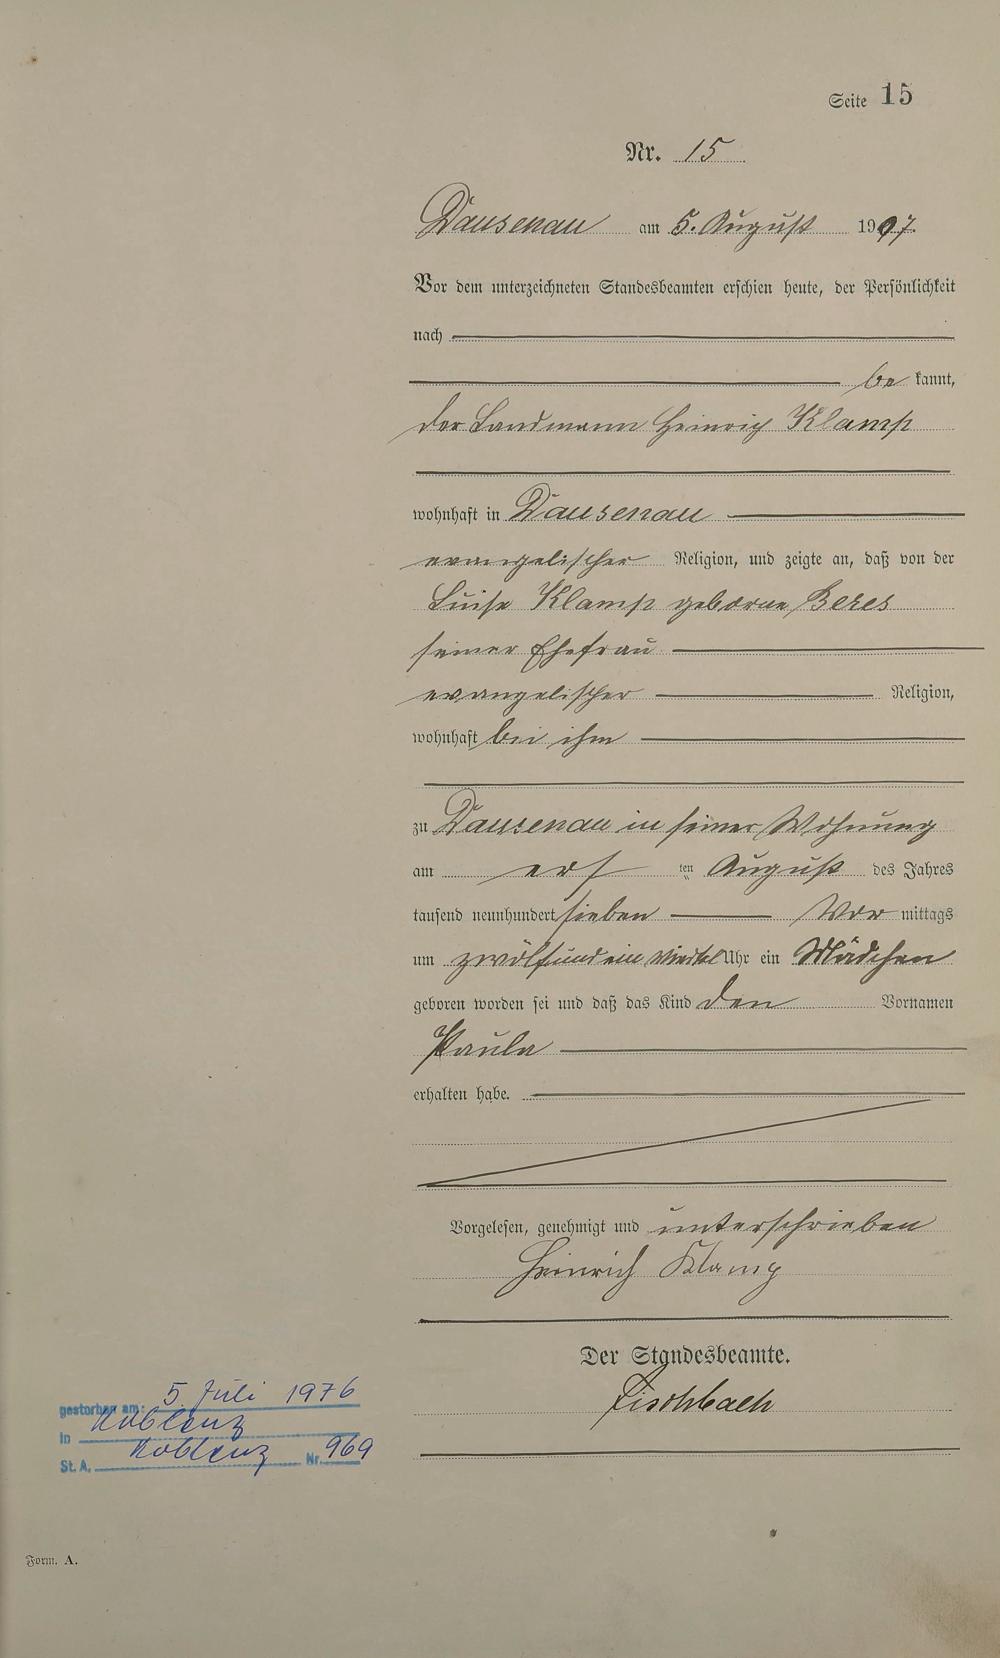 Seite 15
Nr. 15
Dausenau am 5. August 1907.
Vor dem unterzeichneten Standesbeamten erschien heute, der Persönlichkeit
nach
be kannt,
der Landmann Heinrich Klamp
wohnhaft in Dausenau
evangelischer Religion, und zeigte an, daß von der
Luise Klamp geborne Beres
seiner Ehefrau
evangelischer Religion,
wohnhaft bei ihm
zu Dausenau in seiner Wohnung
am ers ten August des Jahres
tausend neunhundert sieben Vor mittags
um zwölfundein Viertel Uhr ein Mädchen
geboren worden sei und daß das Kind den Vornamen
Paula
erhalten habe.
Vorgelesen, genehmigt und unterschrieben
Heinrich Klamp
Der Standesbeamte.
Fischbach
gestorben am: 5. Juli 1976
in Koblenz
St. A. Koblenz Nr. 969
Form. A.